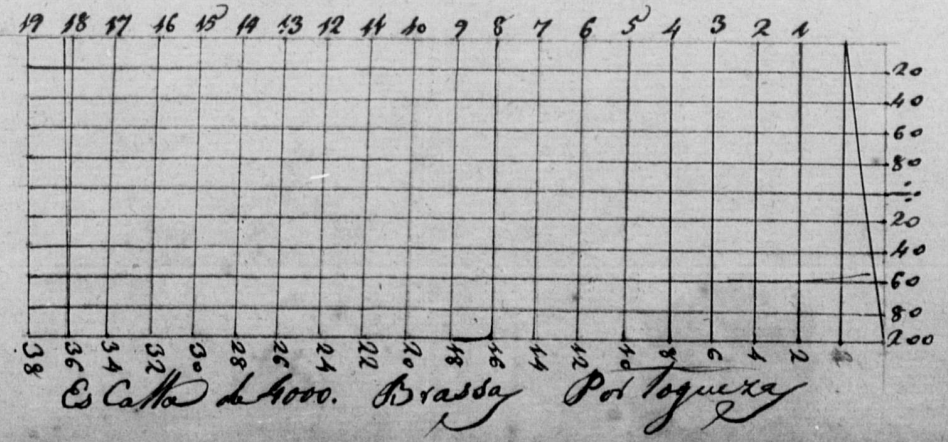 19 18 17 16 15 14 13 12 11 10 9 8 7 6 5 4 3 2 1
20
40
60
80
20
40
60
80
200
38 36 34 32 30 28 26 24 22 20 18 16 14 12 10 8 6 4 2
EsCalla de 4000. Brassas Portogueza